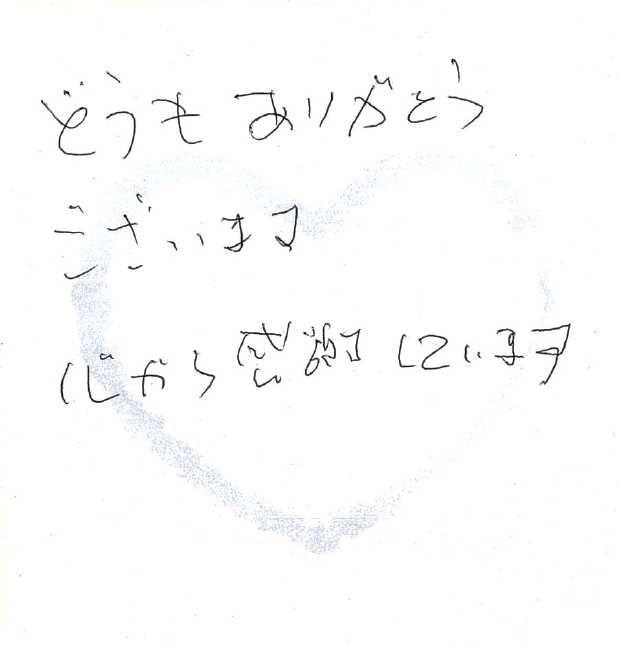 どうもありがとう
ございます
心から感謝しています